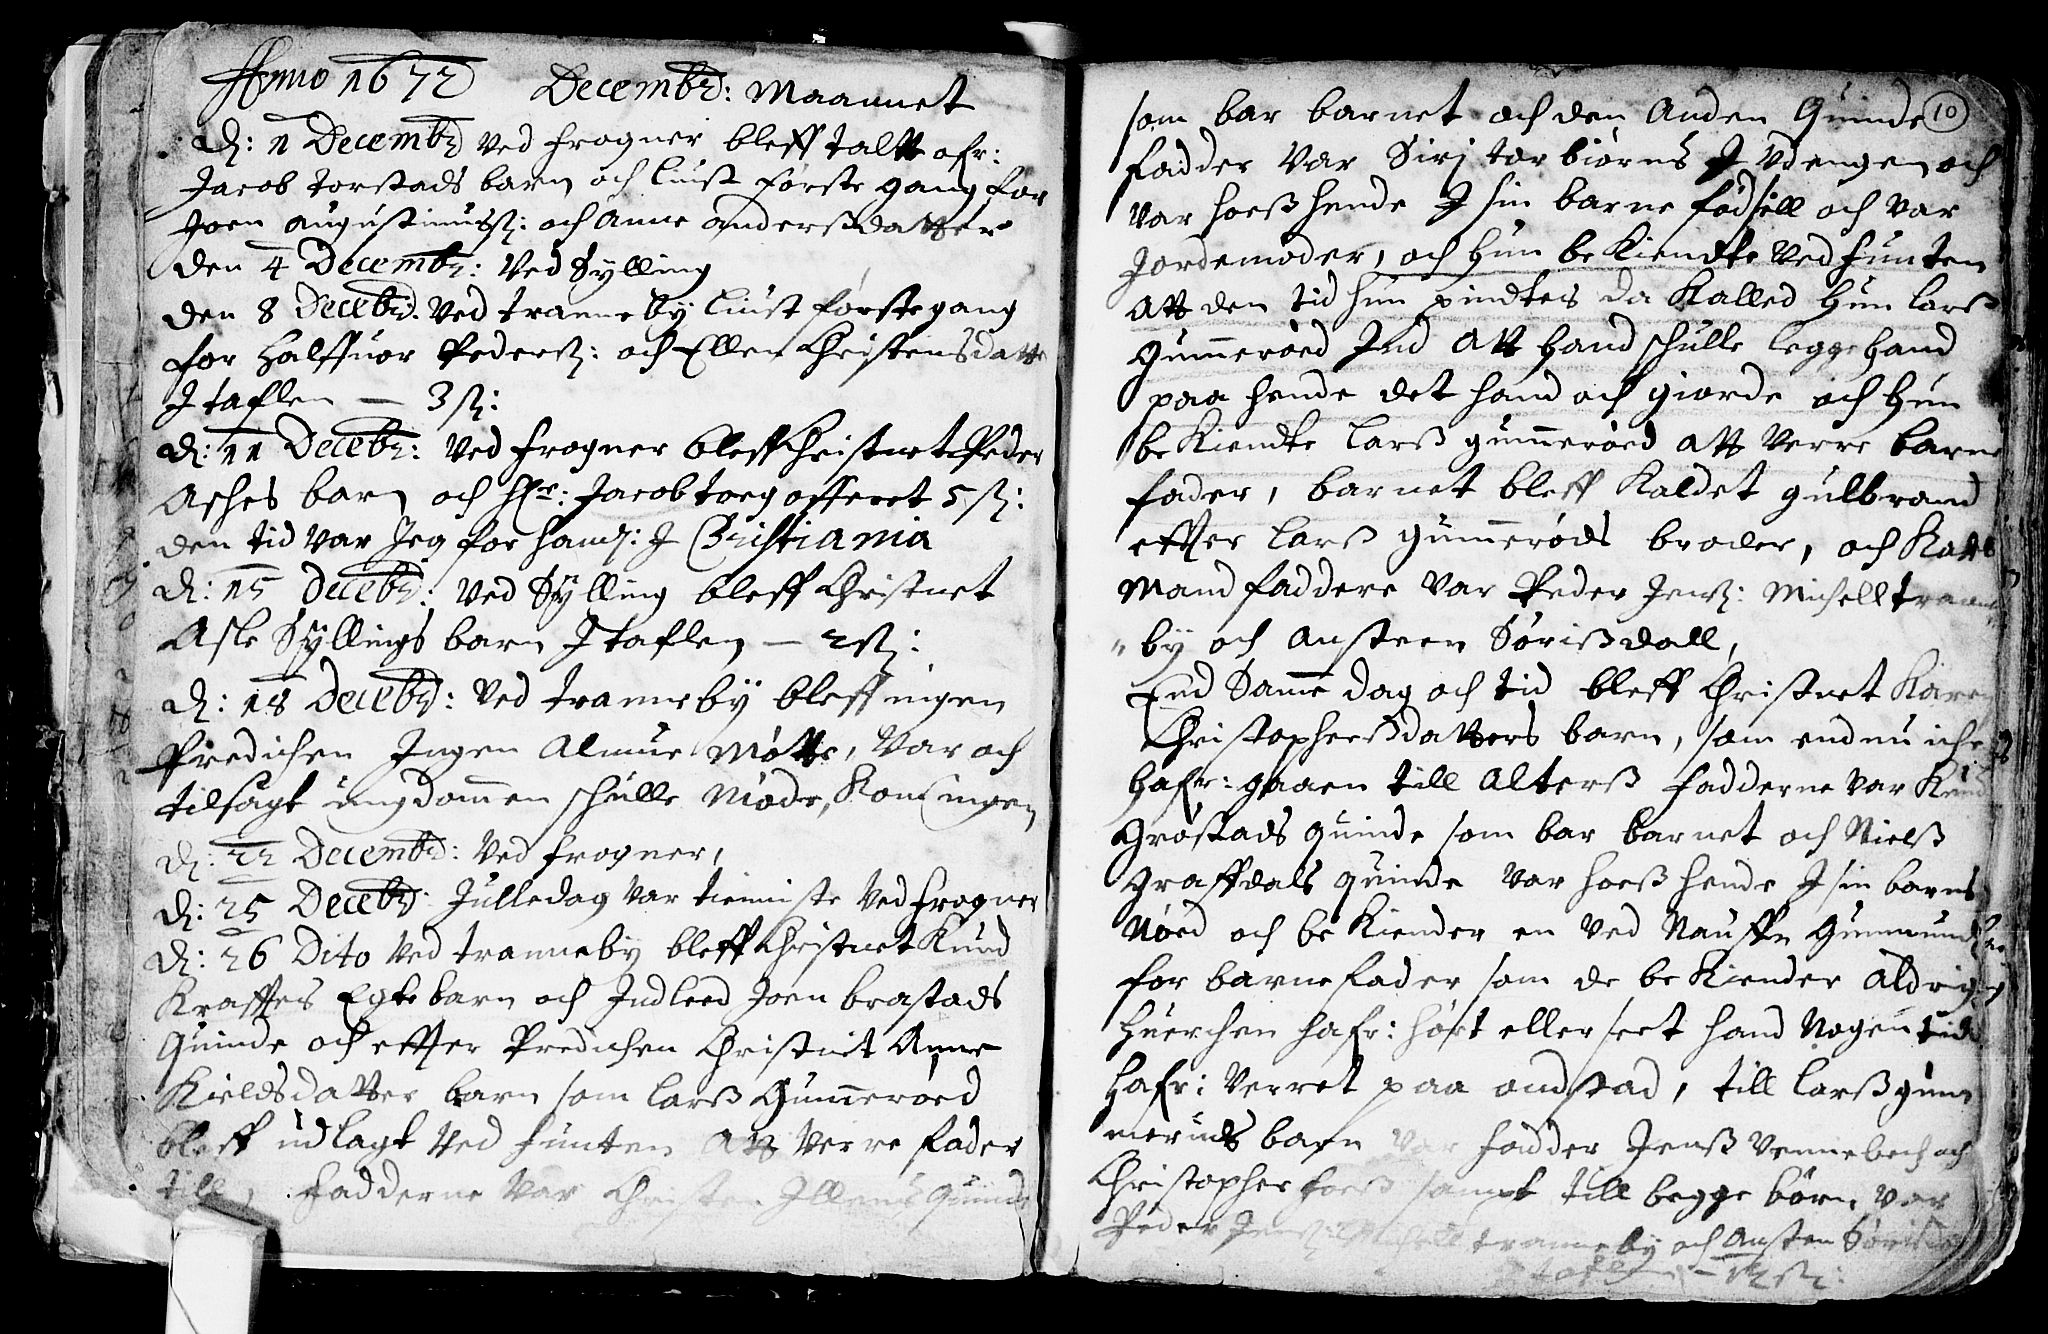 Anno 1672 Decembr: Maannet
D: 1 Decembr Ved frogner bleff taltt ofr:
Jacob torstads barn och liust første gang for
Joen augustinuss: och Anne andersdatter
den 4 Decembr: Ved Sylling
den 8 Decebr: Ved tranneby liust første gang
for Halffuor Peders: och Ellen Christensdatt
J taflen — 3 s:
D: 11 Decebr: Ved frogner bleff Christnet Peder
Asches barn och Hr: Jacob toeg offeret 5 s:
den tid var Jeg for hand: J Christiania
D: 15 Decebr: Ved Sylling bleff Christnet
Asle Syllings barn J taflen — 2 s:
D: 18 Decebr: Ved tranneby bleff ingen
Predichen Ingen Almue Møtte, Var och
tilsagt ungdommen schulle Møde, Kom ingen
D: 22 Decembr: Ved frogner,
D: 25 Decebr: Julledag var tienniste Ved frogner
D: 26 Dito Ved tranneby bleff Christnet Knud
Krafftes Egte barn och Indleed Joen brastads
Quinde och effter Predichen Christnet Anne
Kieldsdatter barn som Larss Gunnerøed
bleff udlagt Ved funten Att Verre fader
till, fadderne Var Christen Illens Quinde
10
som bar barnet och den Anden Quinde
fadder Var Sirj torbiørns J Vdengen och
var hoess hende J sin barne fødsell och var
Jordemoder, och Hun bekiendte Ved funten
Att den tid hun pindtes da Kalled Hun Larss
Gunnerøed Ind Att Hand schulle legge Hand
paa hende det hand och giorde och Hun
bekiendte Larss gunnerøed Att Verre barne
fader, barnet bleff Kaldet gulbrand
effter Larss Gunnerøds broder, och
Mand faddere Var Peder Jens: Michell trann
by och Ansteen Sørissdall,
End Samme dag och tid bleff Christnet Karen
Christopherssdatters barn, som endnu iche
Hafr: gaaen till Alterss fadderne var Knud
Grøstads quinde som bar barnet och Nielss
Graffdals quinde Var hoess hende J sin barns
Nøed och bekiender en Ved Nauffn Gunmund
for barnefader som de bekiender Aldrig
Huerchen hafr: hørt eller seet hand Nogen tid
Hafr: Verret paa , till Larss gunn
meruds barn Var fadder Jenss Vennebech och
Christopher foess sampt till begge børn Var
Peder Jens: Michell tranneby och Ansten Sørissda
J taflen — s: